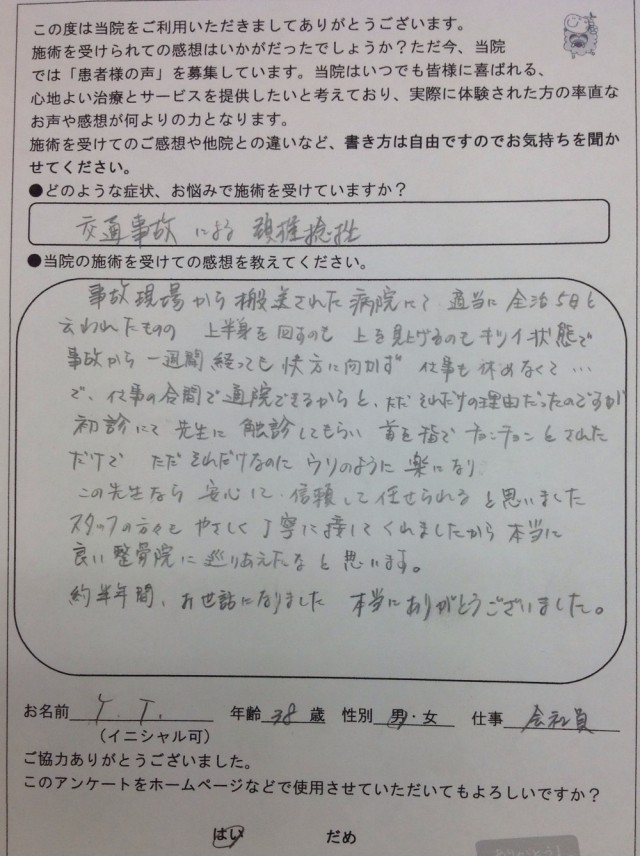 この度は当院をご利用いただきましてありがとうございます。
施術を受けられての感想はいかがだったでしょうか？ただ今、当院
では「患者様の声」を募集しています。当院はいつでも皆様に喜ばれる、
心地よい治療とサービスを提供したいと考えており、実際に体験された方の率直な
お声や感想が何よりの力となります。
施術を受けてのご感想や他院との違いなど、書き方は自由ですのでお気持ちを聞か
せてください。
●どのような症状、お悩みで施術を受けていますか？
交通事故 による 頚椎捻挫
●当院の施術を受けての感想を教えてください。
事故現場から搬送された病院にて 適当に 全治5日と
云われたものの 上半身を回すのも 上を見上げるのもキツイ状態で
事故から 一週間経っても快方に向かず 仕事も休めなくて…
で、仕事の合間で通院できるからと、ただそれだけの理由だったのですが
初診にて 先生に 触診してもらい 首を指でチョンチョンとされた
だけで ただそれだけなのに ウソのように 楽になり
この先生なら 安心して 信頼して任せられると思いました
スタッフの方々も やさしく丁寧に接してくれましたから 本当に
良い整骨院に巡りあえたなと思います。
約半年間、お世話になりました 本当にありがとうございました。
お名前 Y. T. 年齢 38 歳 性別 男・女 仕事 会社員
（イニシャル可）
ご協力ありがとうございました。
このアンケートをホームページなどで使用させていただいてもよろしいですか？
はい だめ
ありがとう！